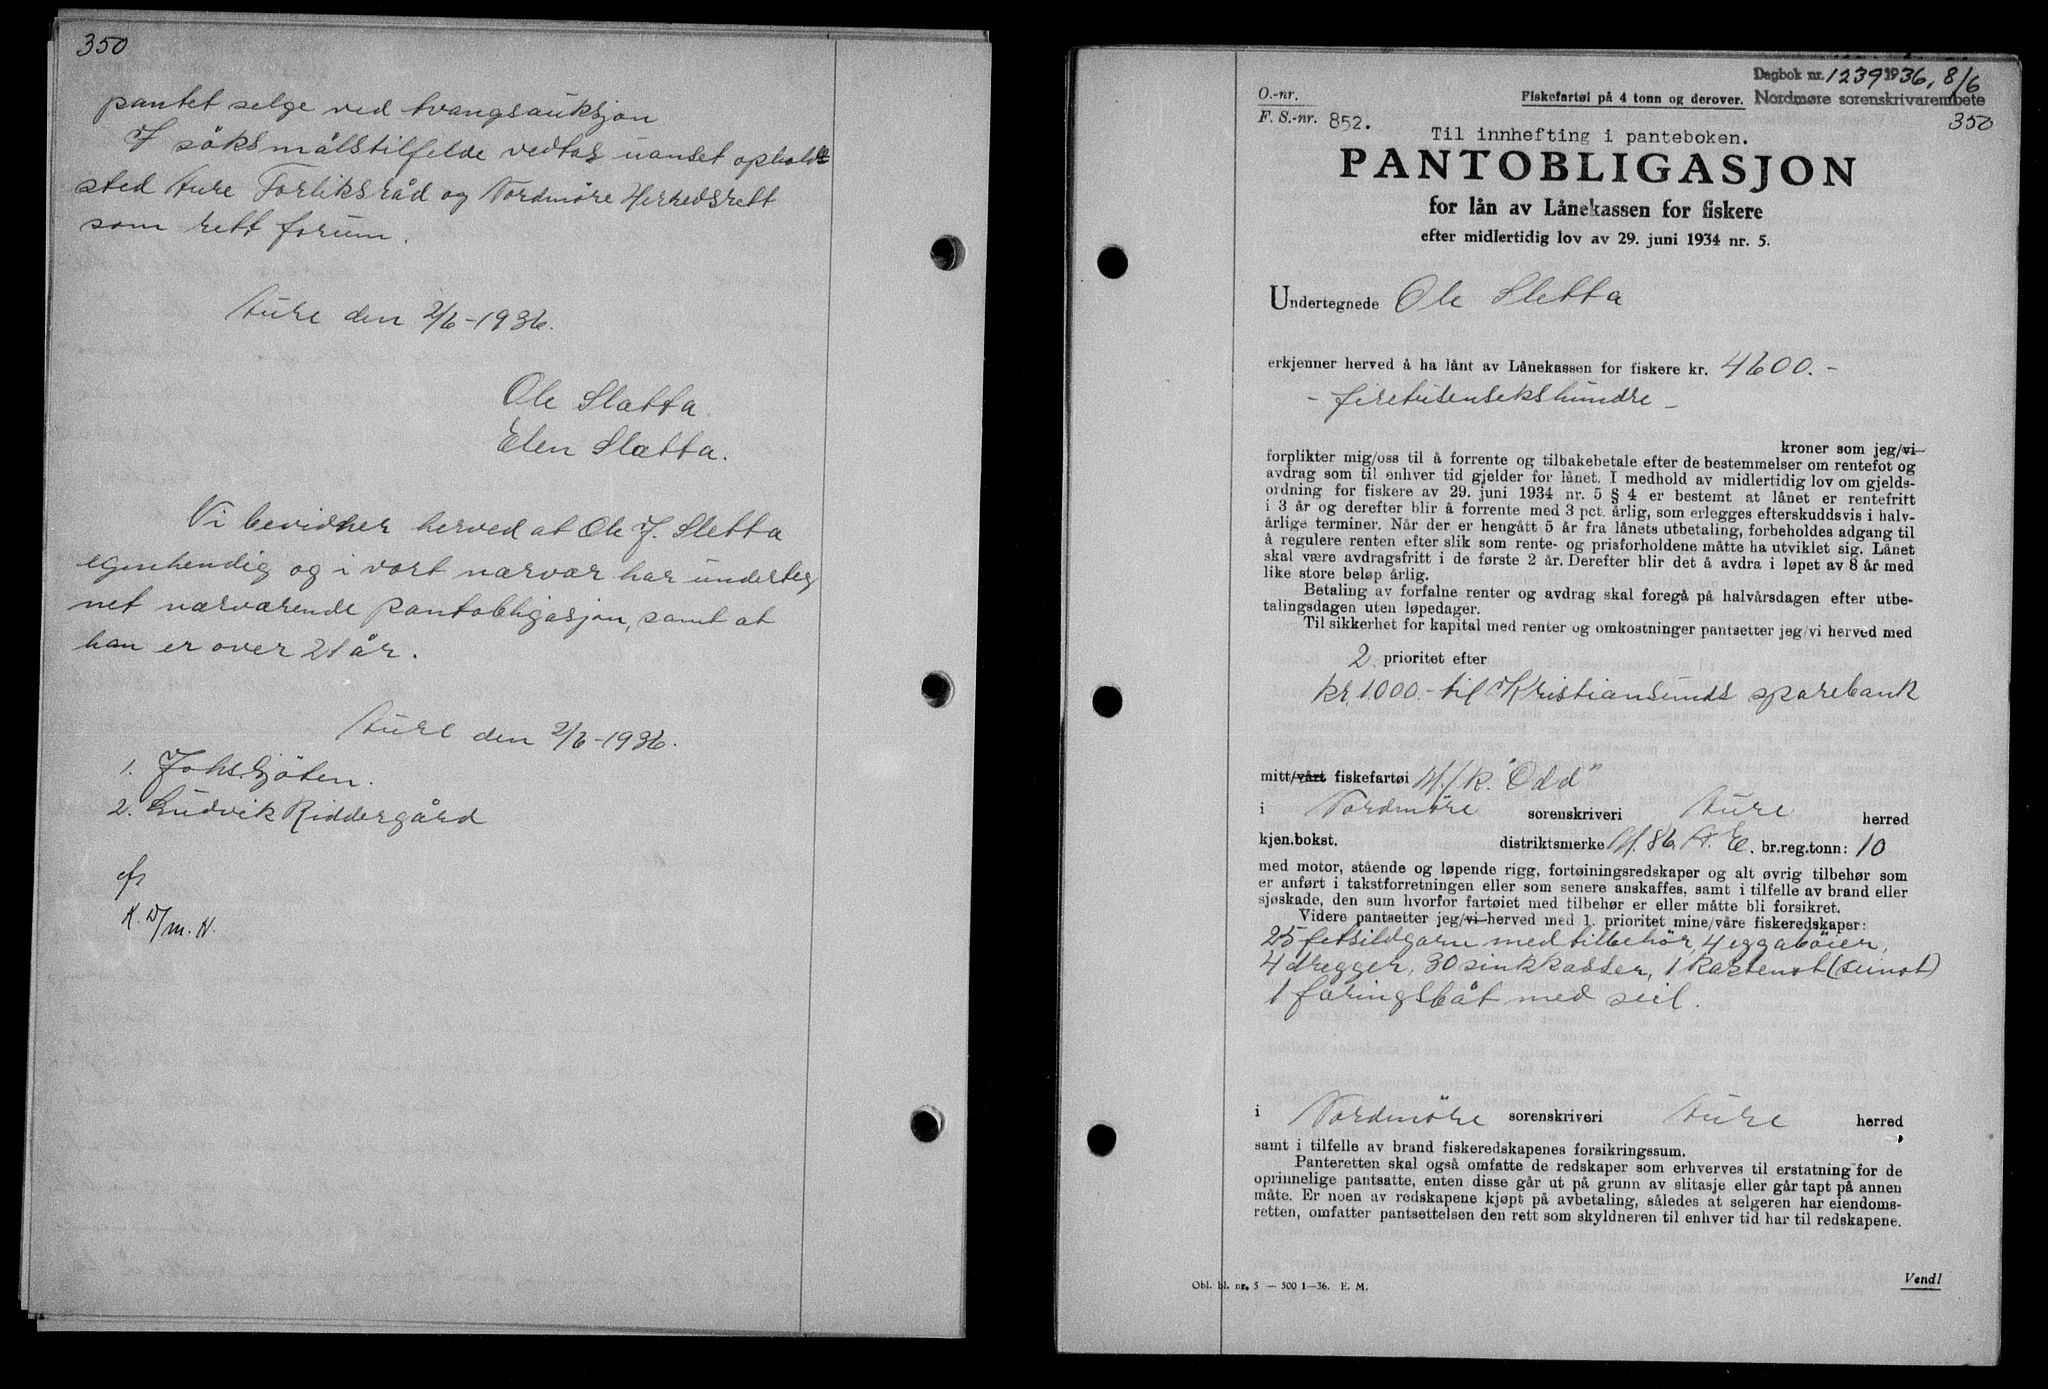 350
pantet selge ved tvangsauksjon
I söksmålstilfelde vedtas uanset opholds
sted Aure Forliksråd og Nordmöre Herredsrett
som rett forum.
Aure den 2/6-1936.
Ole Slatta.
Elen Slatta.
Vi bevidner herved at Ole J. Sletta
egenhendig og i vort nærvær har underteg
net nærværende pantobligasjon, samt at
han er over 21 år.
Aure den 2/6-1936.
1. Johs.
2. Ludvik Riddergård
Dagbok nr. 1239 1936, 8/6
Fiskefartøi på 4 tonn og derover. Nordmøre sorenskrivarembete
O.-nr.
350
F. S.-nr. 852.
Til innhefting i panteboken.
PANTOBLIGASJON
for lån av Lånekassen for fiskere
efter midlertidig lov av 29. juni 1934 nr. 5.
Undertegnede Ole Sletta
erkjenner herved å ha lånt av Lånekassen for fiskere kr. 4600.-
- firetusensekshundre -
kroner som jeg/vi
forplikter mig/oss til å forrente og tilbakebetale efter de bestemmelser om rentefot og
avdrag som til enhver tid gjelder for lånet. I medhold av midlertidig lov om gjelds-
ordning for fiskere av 29. juni 1934 nr. 5 § 4 er bestemt at lånet er rentefritt
i 3 år og derefter blir å forrente med 3 pct. årlig, som erlegges efterskuddsvis i halv-
årlige terminer. Når der er hengått 5 år fra lånets utbetaling, forbeholdes adgang til
å regulere renten efter slik som rente- og prisforholdene måtte ha utviklet sig. Lånet
skal være avdragsfritt i de første 2 år. Derefter blir det å avdra i løpet av 8 år med
like store beløp årlig.
Betaling av forfalne renter og avdrag skal foregå på halvårsdagen efter utbe-
talingsdagen uten løpedager.
Til sikkerhet for kapital med renter og omkostninger pantsetter jeg/vi herved med
2. prioritet efter
kr. 1000.- til Kristiansunds sparebank
mitt/vårt fiskefartøi M/k. "Odd"
i Nordmöre sorenskriveri Aure herred
kjen.bokst. distriktsmerke M. 86. A. E. br.reg.tonn: 10
med motor, stående og løpende rigg, fortøiningsredskaper og alt øvrig tilbehør som
er anført i takstforretningen eller som senere anskaffes, samt i tilfelle av brand eller
sjøskade, den sum hvorfor fartøiet med tilbehør er eller måtte bli forsikret.
Videre pantsetter jeg/vi herved med 1. prioritet mine/våre fiskeredskaper:
25 fetsildgarn med tilbehör, 4 eggabøier,
4 dregger, 30 sinkkasser, 1 kastenot (seinot)
1 færingsbåt med seil.
i Nordmöre sorenskriveri Aure herred
samt i tilfelle av brand fiskeredskapenes forsikringssum.
Panteretten skal også omfatte de redskaper som erhverves til erstatning for de
oprinnelige pantsatte, enten disse går ut på grunn av slitasje eller går tapt på annen
måte. Er noen av redskapene kjøpt på avbetaling, således at selgeren har eiendoms-
retten, omfatter pantsettelsen den rett som skyldneren til enhver tid har til redskapene.
Obl. bl. nr. 5 — 500 1—36. E. M.
Vend!